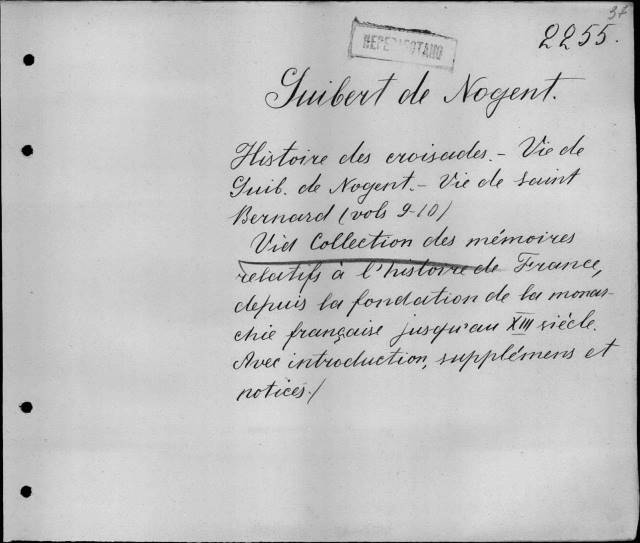 37
2255.
REPERTORIANO
Guibert de Nogent.
Histoire des croisades. - Vie de
Guib. de Nogent. - Vie de saint
Bernard (vols 9-10)
Vid Collection des mémoires
relatifs à l'histoire de France,
depuis la fondation de la monar-
chie française jusqu'au XIII siécle.
Avec introduction, supplémens et
notices./